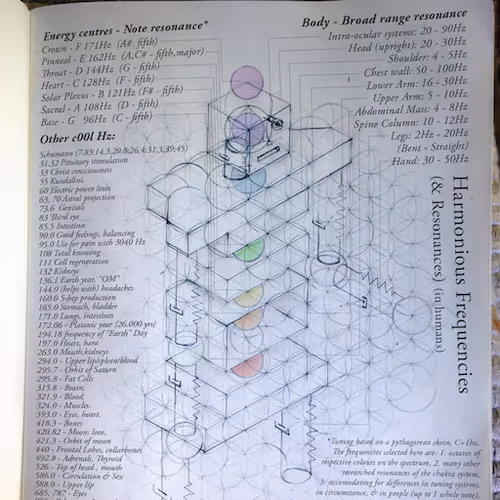 Energy centres - Note resonance*
Crown - F 171Hz (A#- fifth)
Pinneal - E 162Hz (A,C# - fifth,major)
Throat - D 144Hz (G - fifth)
Heart - C 128Hz (F - fifth)
Solar Plexus - B 121Hz (F# - fifth)
Sacral - A 108Hz (D - fifth)
Base - G 96Hz (C - fifth)
Other c00l Hz:
Schumann (7.83;14.3;20.8;26.4;31.3;39;45)
31.32 Pituitary stimulation
33 Christ consciousness
55 Kundalini.
60 Electric power lines
63, 70 Astral projection
73.6 Genitals
83 Third eye
85.5 Intestines
90.0 Good feelings, balancing
95.0 Use for pain with 3040 Hz
108 Total knowing
111 Cell regeneration
132 Kidneys
136.1 Earth year, "OM"
144.0 (helps with) headaches
160.0 5-htp production
165.0 Stomach, bladder
171.0 Lungs, intestines
172.06 - Platonic year (26,000 yrs)
194.18 frequency of "Earth" Day
197.0 Heart, hard
263.0 Mouth,kidneys
294.0 - Upper lip/spleen/blood
295.7 - Orbit of Saturn
295.8 - Fat Cells
315.8 - Brain,
321.9 - Blood,
324.0 - Muscles,
393.0 - Eyes, heart,
418.3 - Bones
420.82 - Moon: love,
421.3 - Orbit of moon
440 - Frontal Lobes, collarbones
492.8 - Adrenals, Thyroid
526 - Top of head , mouth
586.0 - Circulation & Sex
588.0 - Upper lip
685, 787 - Eyes
Body - Broad range resonance
Intra-ocular systems: 20 - 90Hz
Head (upright): 20 - 30Hz
Shoulder: 4 - 5Hz
Chest wall: 50 - 100Hz
Lower Arm: 16 - 30Hz
Upper Arm: 5 - 10Hz
Abdominal Mass: 4 - 8Hz
Spine Column: 10 - 12Hz
Legs: 2Hz - 20Hz
(Bent - Straight)
Hand: 30 - 50Hz
Harmonious Frequencies
(& Resonances) (in humans)
*Tuning based on a pythagorean skein, C=1hz.
The frequencies selected here are: 1. octaves of
respective colours on the spectrum, 2. many other
researched resonances of the chakra system,
3: accomodating for differences in tuning systems,
in circumstance, & in people (up to 1 whole note),